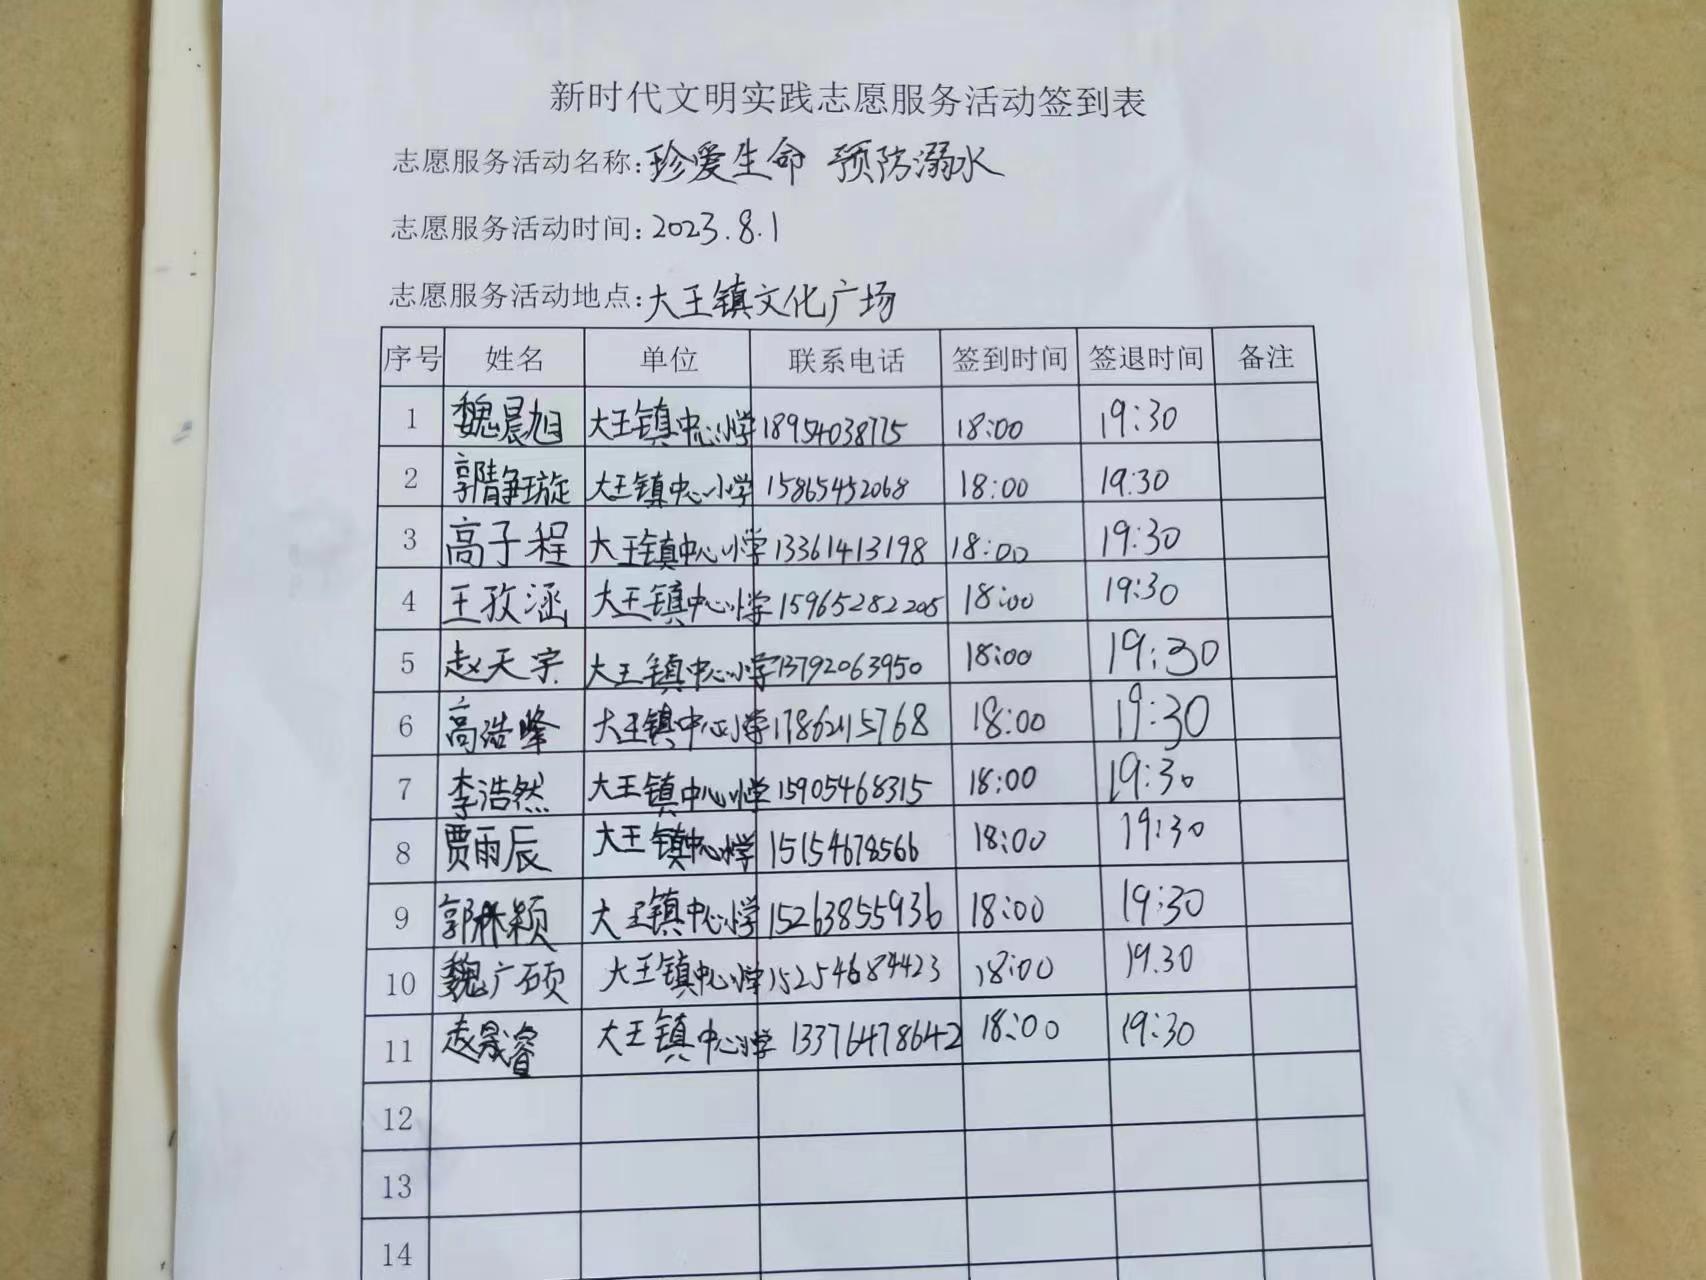 新时代文明实践志愿服务活动签到表
志愿服务活动名称:珍爱生命 预防溺水
志愿服务活动时间:2023.8.1
志愿服务活动地点:大王镇文化广场
序号 姓名 单位 联系电话 签到时间 签退时间 备注
1 魏晨旭 大王镇中心小学 18954038775 18:00 19:30
2 郭静璇 大王镇中心小学 15865452068 18:00 19:30
3 高子程 大王镇中心小学 13361413198 18:00 19:30
4 王孜涵 大王镇中心小学 15965282205 18:00 19:30
5 赵天宇 大王镇中心小学 13792063950 18:00 19:30
6 高浩峰 大王镇中心小学 17862415768 18:00 19:30
7 李浩然 大王镇中心小学 15905468315 18:00 19:30
8 贾雨辰 大王镇中心小学 15154678566 18:00 19:30
9 郭林颖 大王镇中心小学 15263855936 18:00 19:30
10 魏广硕 大王镇中心小学 15254684423 18:00 19.30
11 赵晟睿 大王镇中心小学 13376478642 18:00 19:30
12
13
14